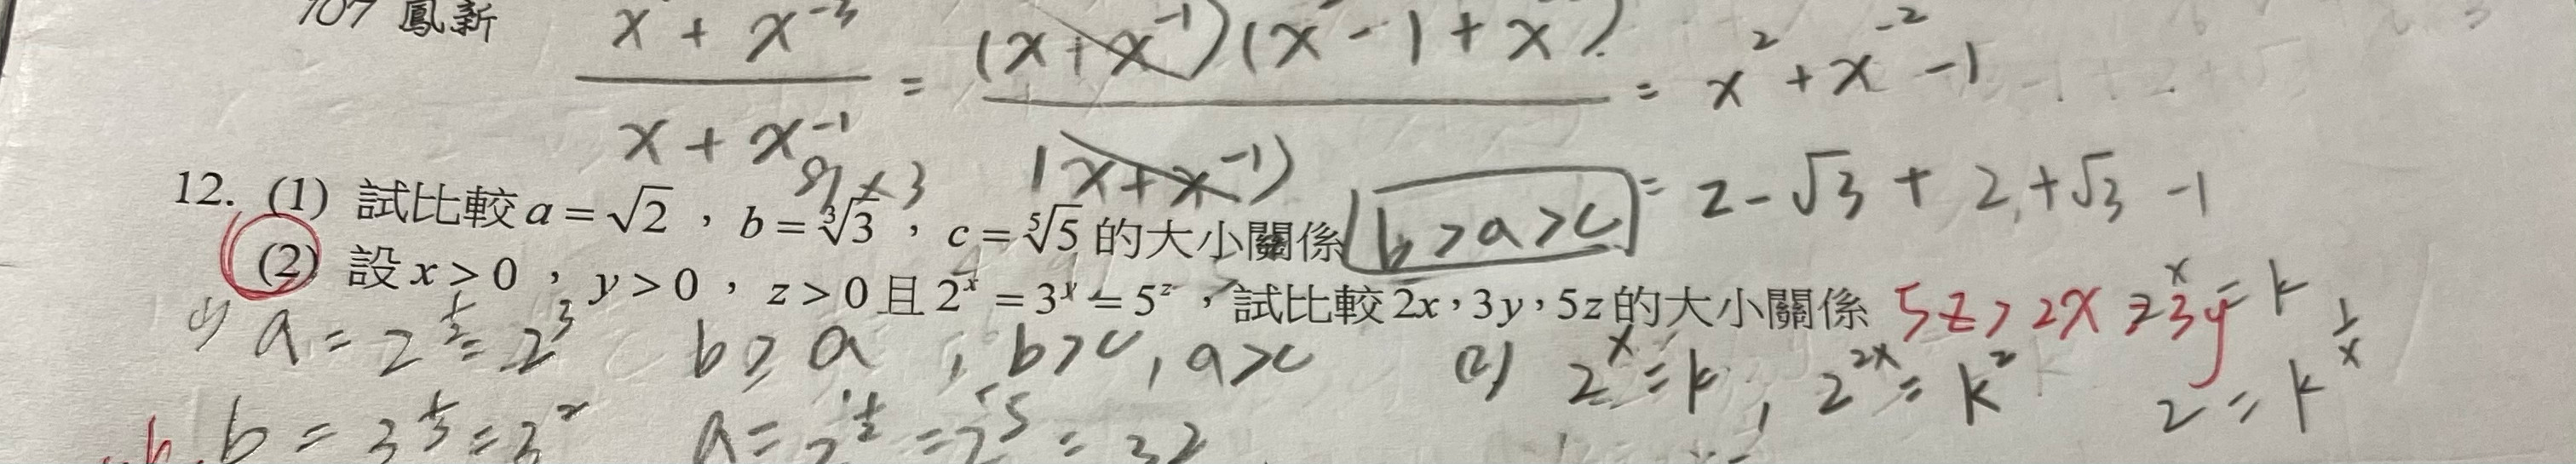 107 鳳新
x + x⁻³ / x + x⁻¹ = (x+x⁻¹)(x² - 1 + x ) / (x+x⁻¹) = x² + x⁻² - 1
= 2 - √3 + 2 + √3 - 1
12. (1) 試比較 a = √2 , b = ∛3 , c = ⁵√5 的大小關係 b > a > c
(2) 設 x > 0 , y > 0 , z > 0 且 2ˣ = 3ʸ = 5ᶻ , 試比較 2x , 3y , 5z 的大小關係 5z > 2x > 3y
(1) a = 2^(1/2) = 2³ b > a , b > c , a > c (2) 2ˣ = k , 2²ˣ = k² 2 = k^(1/x)
b = 3^(1/3) = 3² a = 2^(1/2) = 2⁵ = 32